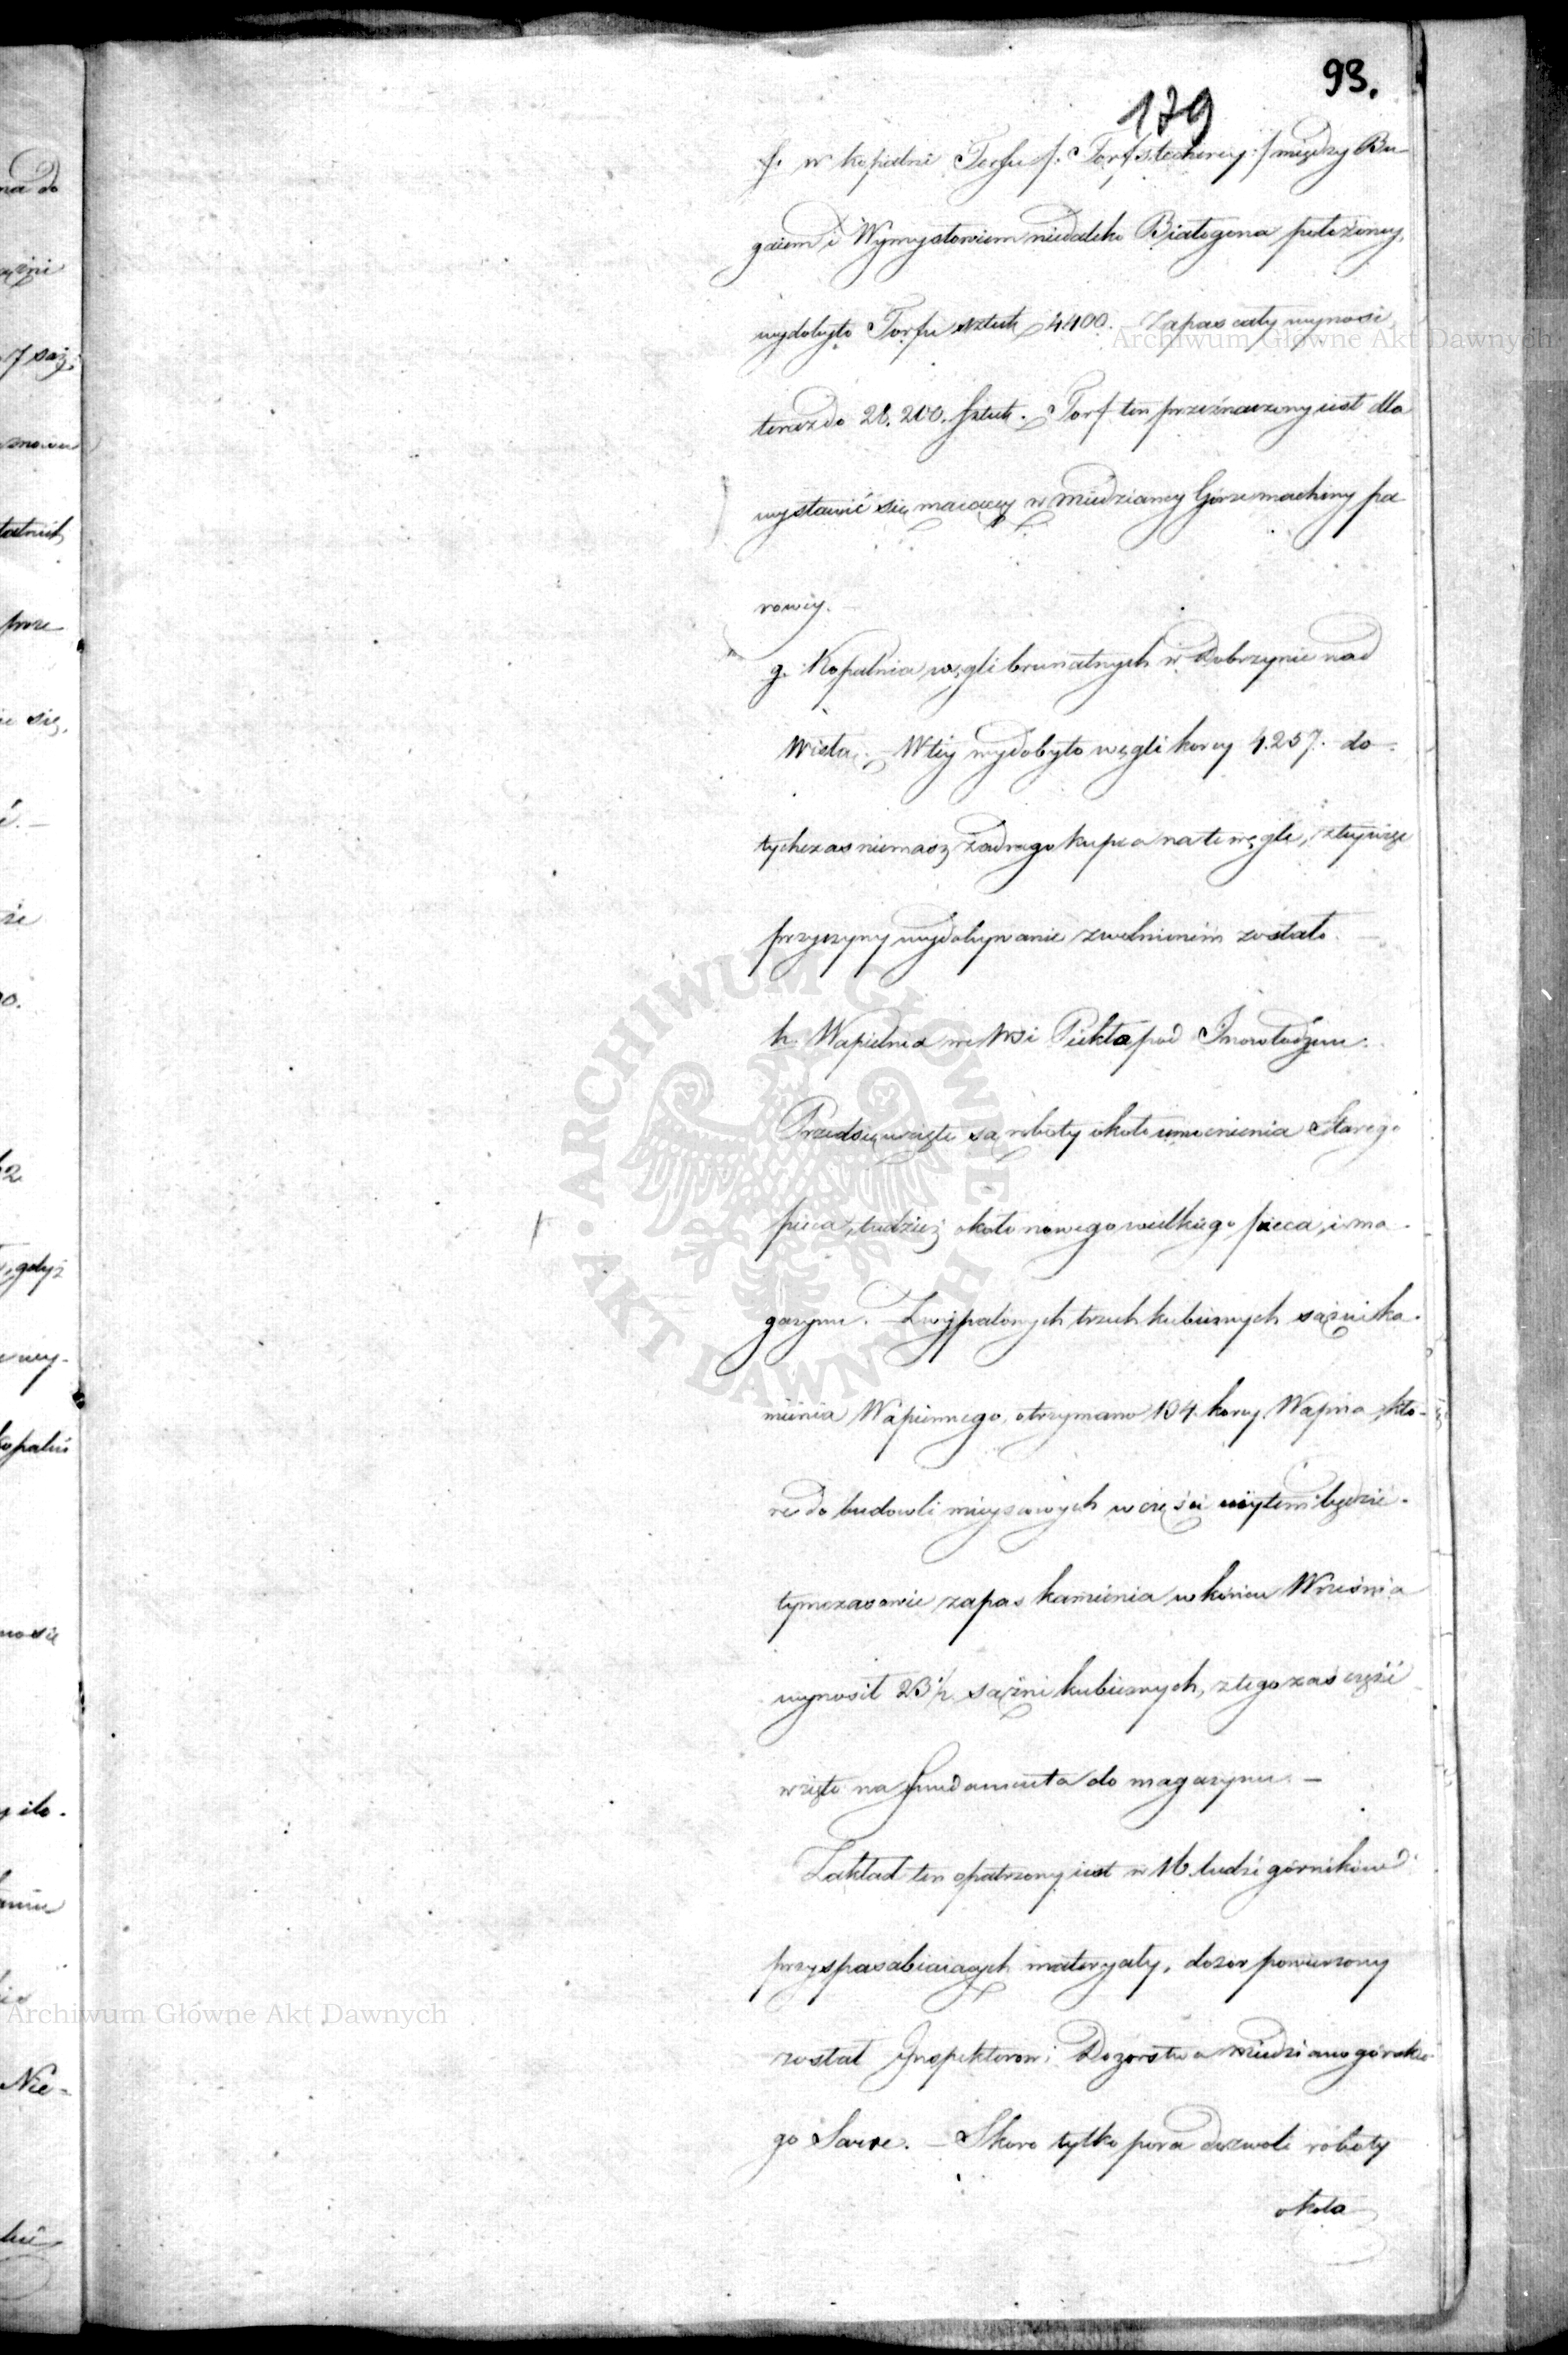 93.
179
f. w kopalni Torfu /: Torfstecherey :/ między Bu-
gaiem i Wymysłowem niedaleko Białogona położoney,
wydobyto Torfu sztuk 4400. Zapas cały wynosi
teraz do 28.200. Sztuk. Torf ten przeznaczony iest dla
wystawić się maiącey w Miedzianey Górze machiny pa
rowey.
g. Kopalnia węgli brunatnych w Dobrzynie nad
Wisłą. – W tey wydobyto węgli korcy 4.257. do-
tychczas niemasz żadnego kupca na te węgle, z tey więc
przyczyny wydobywanie zwolnionem zostało. –
h. Wapielnia we Wsi Piekła pod Inowłodzem.
Przedsięwzięte są roboty około umocnienia Starego
pieca, tudzież około nowego wielkiego pieca, i ma-
gazynu. – Z wypalonych trzech kubicznych sążni ka-
mienia Wapiennego, otrzymano 134. korcy Wapna, któ-
re do budowli mieyscowych w części użytem będzie.
tymczasowie zapas kamienia w końcu Września
wynosił 23 1/2 sążni kubicznych, z tego zaś część
wzięto na fundamenta do magazynu. –
Zakład ten opatrzony iest w 16. ludzi górników
przysposabiaiących materyały, dozór powierzony
został Inspektorowi Dozorstwa Miedzianogórskie-
go . – Skoro tylko pora dozwoli roboty
około
na do
7 sąż:
znowu
prze
ie się,
gdyż
wy-
kopalń
nosie
ilo-
Nie-
Archiwum Główne Akt Dawnych
ARCHIWUM GŁÓWNE AKT DAWNYCH
Archiwum Główne Akt Dawnych